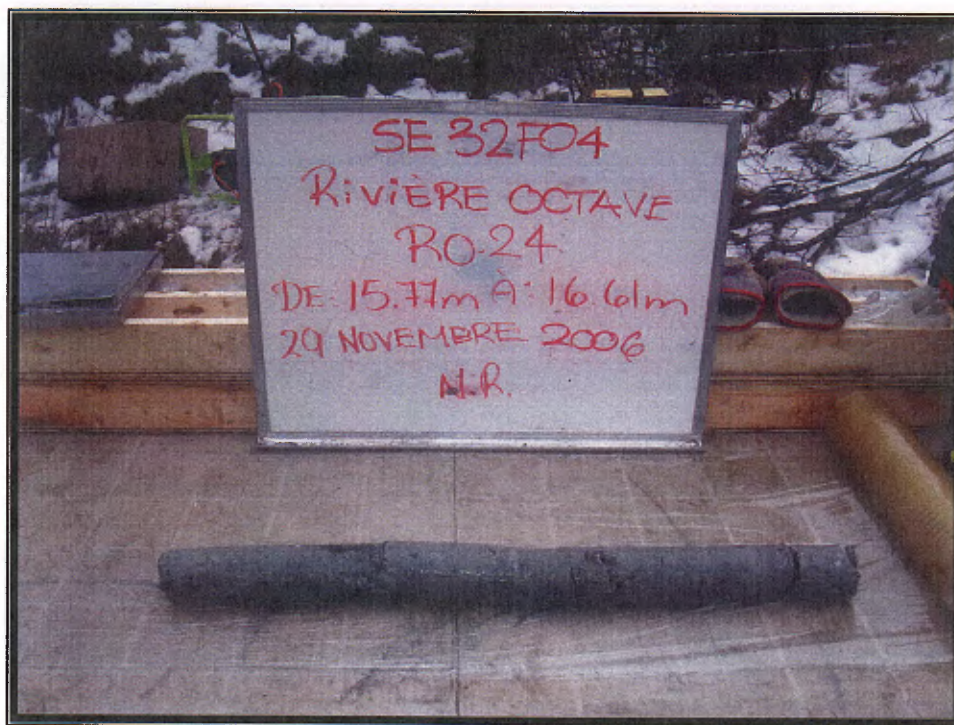 SE 32F04
RiVIÈRE OCTAVE
RO-24
DE: 15.77m À: 16.61m
29 NOVEMBRE 2006
N.R.